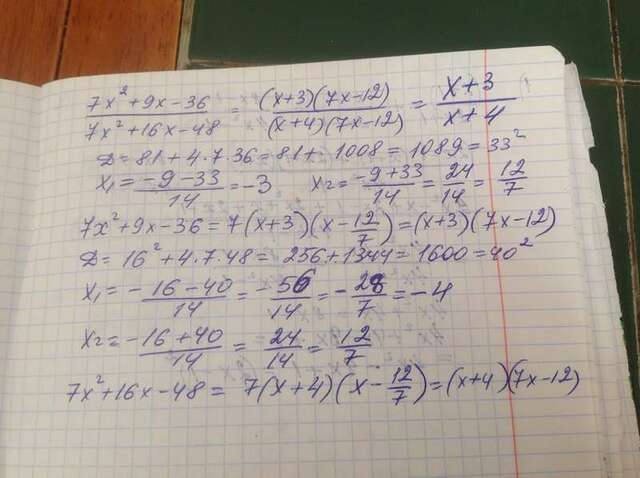 (7x²+9x-36)/(7x²+16x-48) = ((x+3)(7x-12))/((x+4)(7x-12)) = (x+3)/(x+4)
D=81+4·7·36=81+1008=1089=33²
x₁=(-9-33)/14=-3 x₂=(-9+33)/14=24/14=12/7
7x²+9x-36=7(x+3)(x-12/7)=(x+3)(7x-12)
D=16²+4·7·48=256+1344=1600=40²
x₁=(-16-40)/14=-56/14=-28/7=-4
x₂=(-16+40)/14=24/14=12/7
7x²+16x-48=7(x+4)(x-12/7)=(x+4)(7x-12)